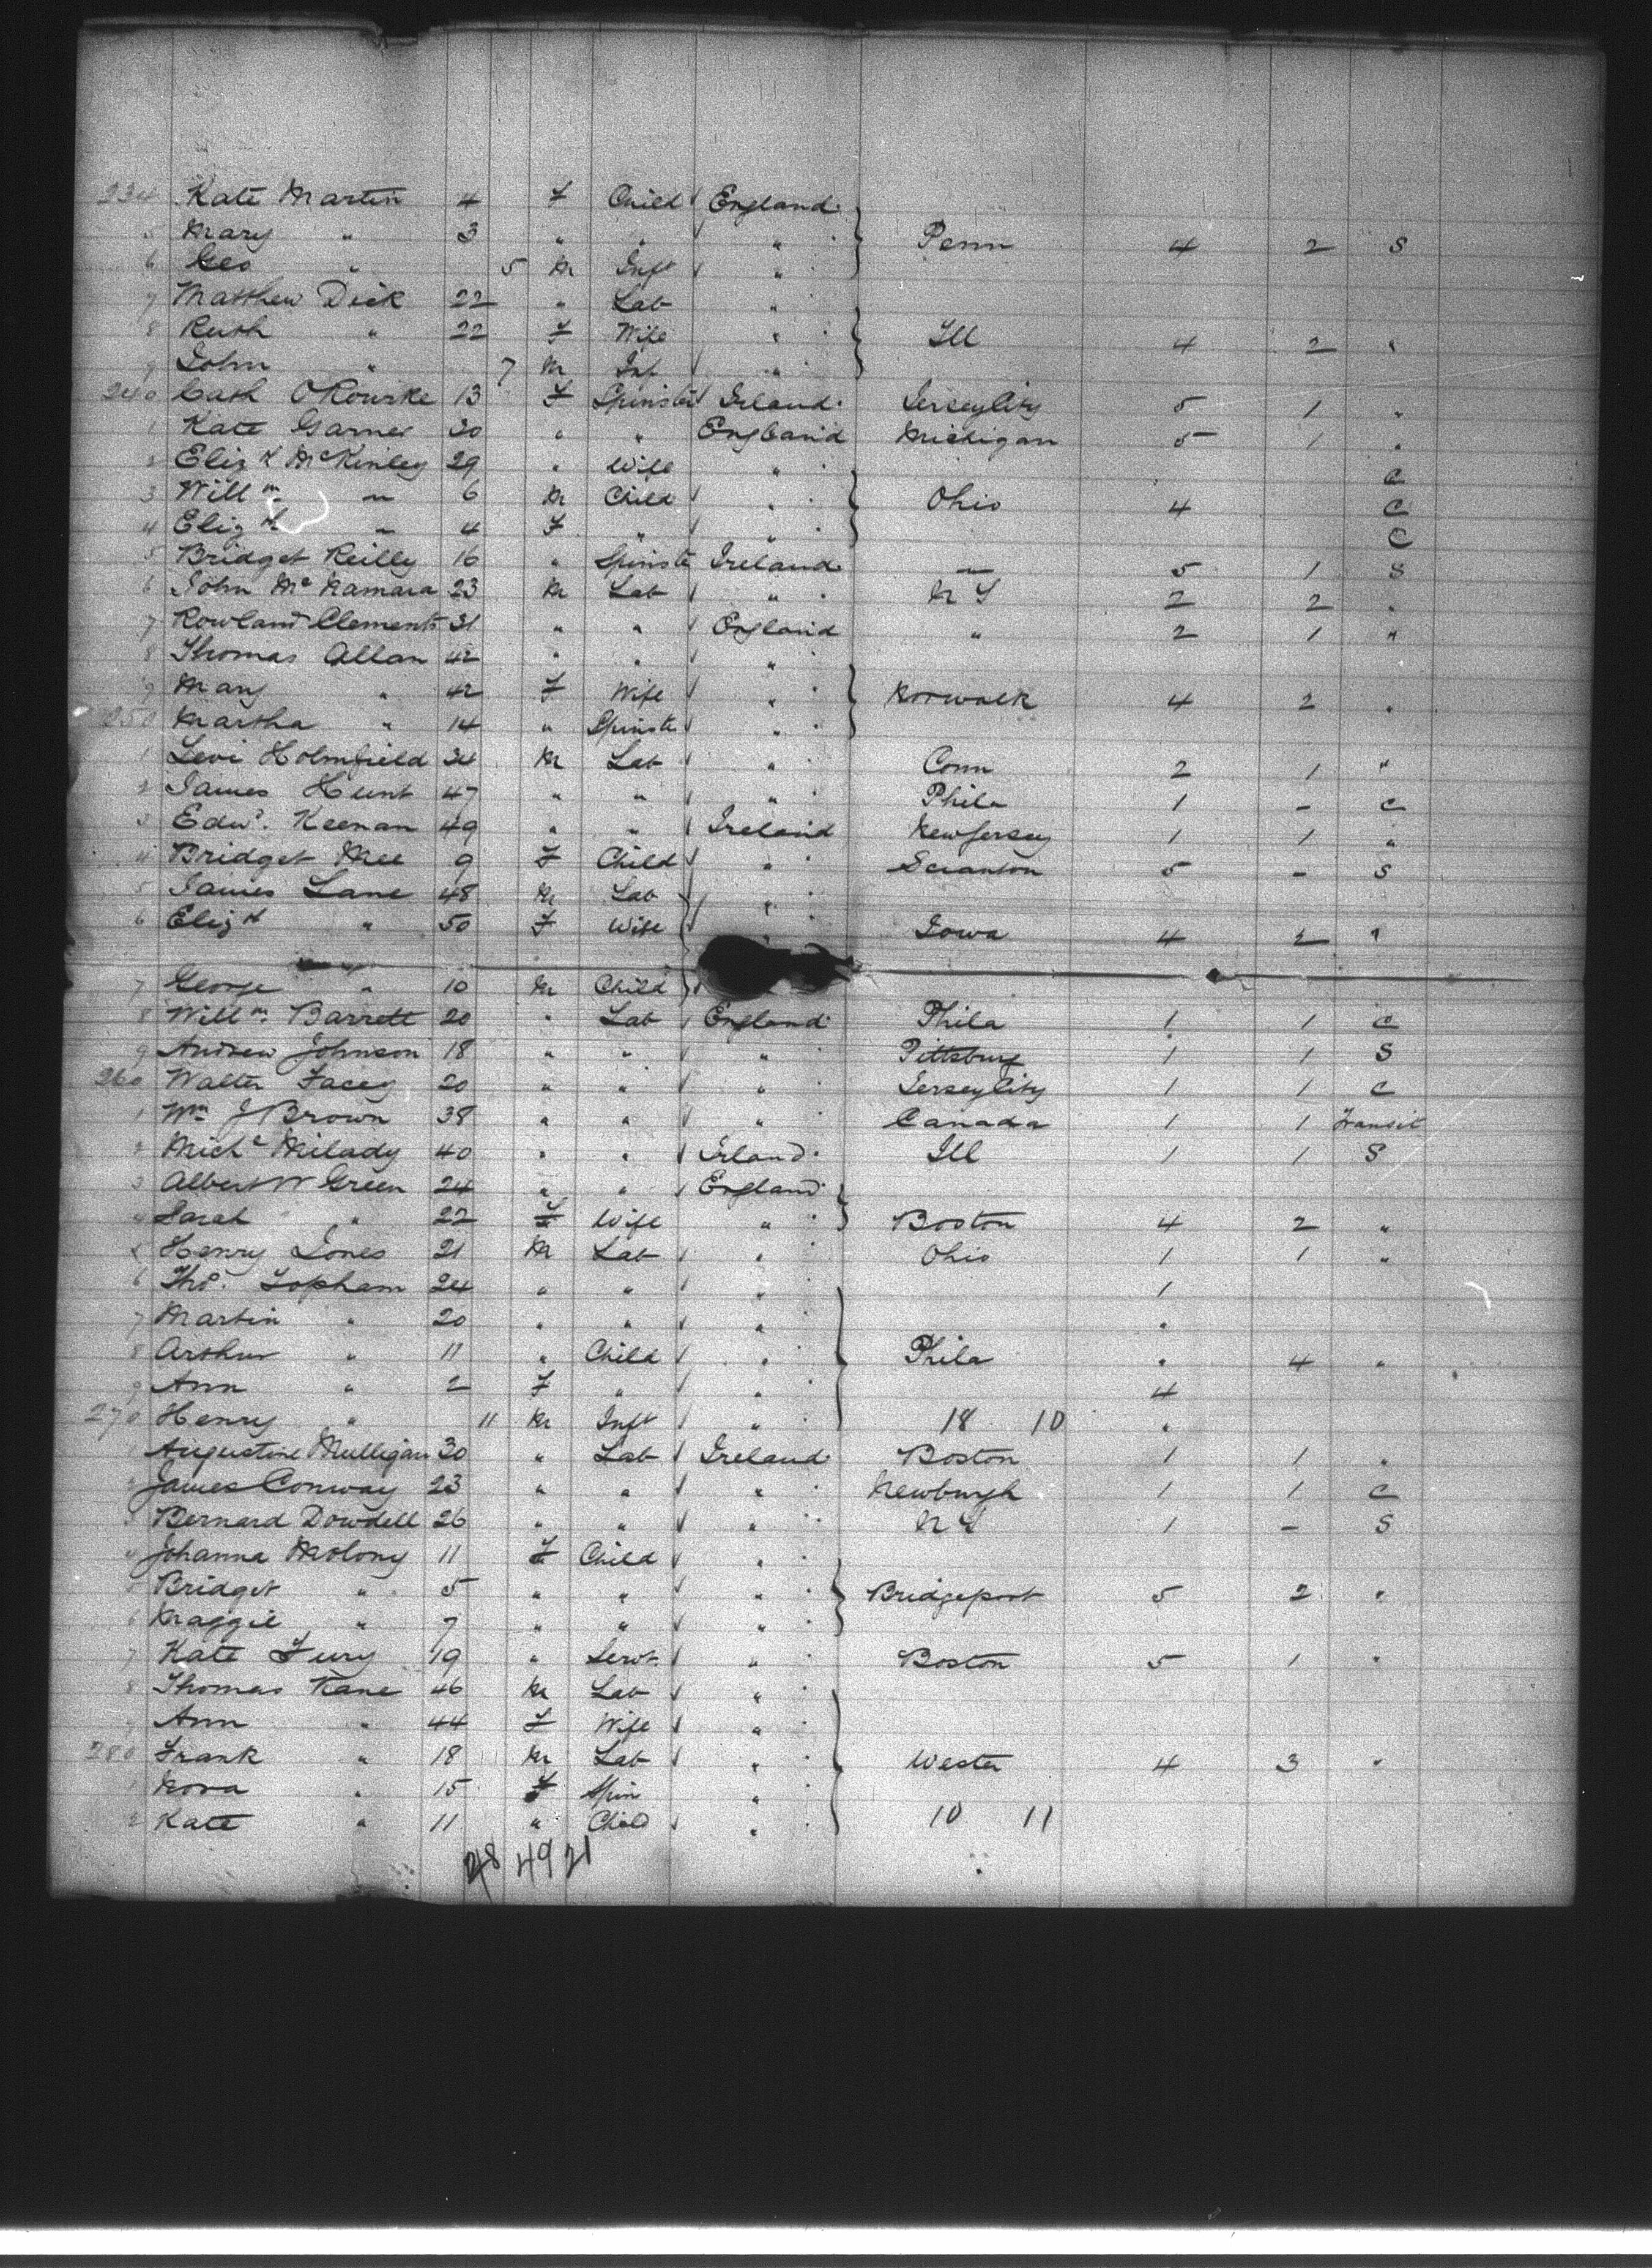 234 Kate Martin 4 F Child England
5 Mary " 3 " " "
Penn 4 2 S
6 Geo " 5 M Inft "
7 Matthew Dick 22 " Lab "
8 Ruth " 22 F Wife " Ill 4 2 "
9 John " 7 M Inf "
240 Cath O'Rourke 13 F Spinster Ireland Jersey City 5 1 "
1 Kate Garner 20 " " England Michigan 5 1 "
2 Eliz th McKinley 29 " Wife " C
3 Will m " 6 M Child " Ohio 4 C
4 Eliz th " 4 F " " C
5 Bridget Reilly 16 " Spinste Ireland — 5 1 S
6 John McNamara 23 M Lab " N Y 2 2 "
7 Rowland Clements 21 " " England " 2 1 "
8 Thomas Allan 42 " " "
9 Mary " 42 F Wife " Norwalk 4 2 "
250 Martha " 14 " Spinste "
1 Levi Holmfield 24 M Lab " Conn 2 1 "
2 James Hunt 47 " " " Phila 1 - C
3 Edwd. Keenan 49 " " Ireland New Jersey 1 1 "
4 Bridget Mee 9 F Child " Scranton 5 - S
5 James Lane 48 M Lab "
6 Eliz th " 50 F Wife Iowa 4 2 "
7 George " 10 M Child
8 Will m. Barrett 20 " Lab England Phila 1 1 C
9 Andrew Johnson 18 " " " Pittsburg 1 1 S
260 Walter Facey 20 " " " Jersey City 1 1 C
1 Wm J Brown 38 " " " Canada 1 1 Transit
2 Michl Milady 40 " " Irland Ill 1 1 S
3 Albert W Green 24 " " England
4 Sarah " 22 F Wife " Boston 4 2 "
5 Henry Jones 21 M Lab " Ohio 1 1 "
6 Tho. Topham 24 " " " 1
7 Martin " 20 " " " "
8 Arthur " 11 " Child " Phila " 4 "
9 Ann " 2 F " " 4
270 Henry " 11 M Inft " 18 10 "
1 Augustine Mulligan 30 " Lab Ireland Boston 1 1 "
2 James Conway 23 " " " Newburgh 1 1 C
3 Bernard Dowdell 26 " " " N Y 1 - S
4 Johanna Molony 11 F Child "
5 Bridget " 5 " " " Bridgeport 5 2 "
6 Maggie " 7 " " "
7 Kate Fury 19 " Servt " Boston 5 1 "
8 Thomas Kane 46 M Lab "
9 Ann " 44 F Wife "
280 Frank " 18 M Lab " Wester 4 3 "
1 Nora " 15 F Spin "
2 Kate " 11 " Child " 10 11
28 49 21